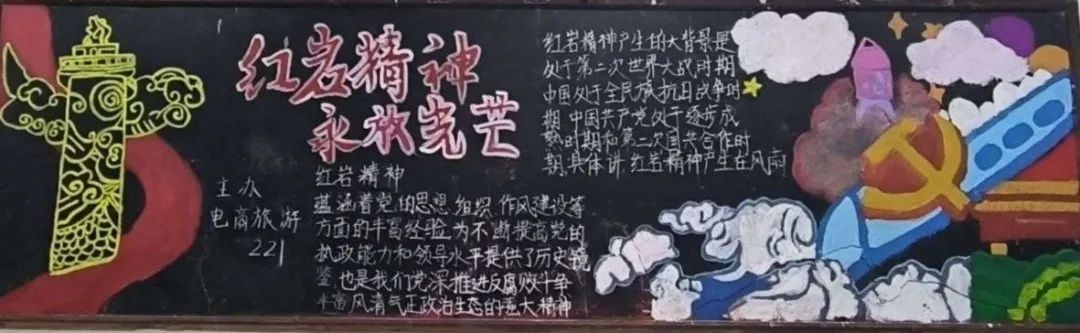 红岩精神
永放光芒
主办
电商旅游
221
红岩精神
蕴涵着党的思想 组织 作风建设等
方面的丰富经验 为不断提高党的
执政能力和领导水平提供了历史镜
鉴 也是我们党深推进反腐败斗争
风清气正政治生态的强大精神
红岩精神产生的大背景是
处于第二次世界大战时期
中国处于全民族抗日战争时
期 中国共产党处于逐步成
熟时期和第二次国共合作时
期 具体讲 红岩精神产生在风雨